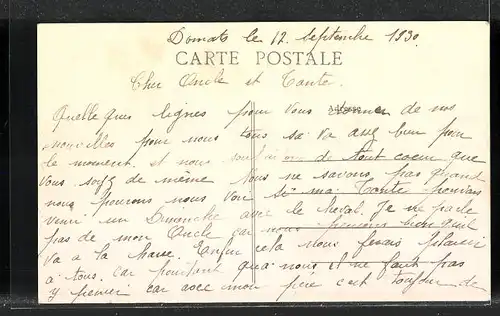 Domats le 12 Septembre 1930
CARTE POSTALE
Cher Oncle et Tante.
Quelques lignes pour vous donner de nos
nouvelles pour nous tous sa va assez bien pour
le moment. et nous de tout coeur que
vous soyez de même Nous ne savons pas quand
nous pourons nous voir si ma Tante pouvais
venir un Dimanche avec le cheval. Je ne parle
pas de mon Oncle car nous bien qu'il
va a la chasse. Enfin cela nous ferais plaisir
a tous. car pourtant qua nous il ne faut pas
y penser car avec mon père c'est toujour de